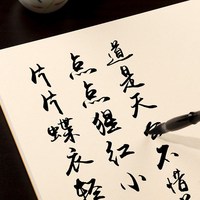 片片蝶衣轻
点点猩红小
道是天公不惜